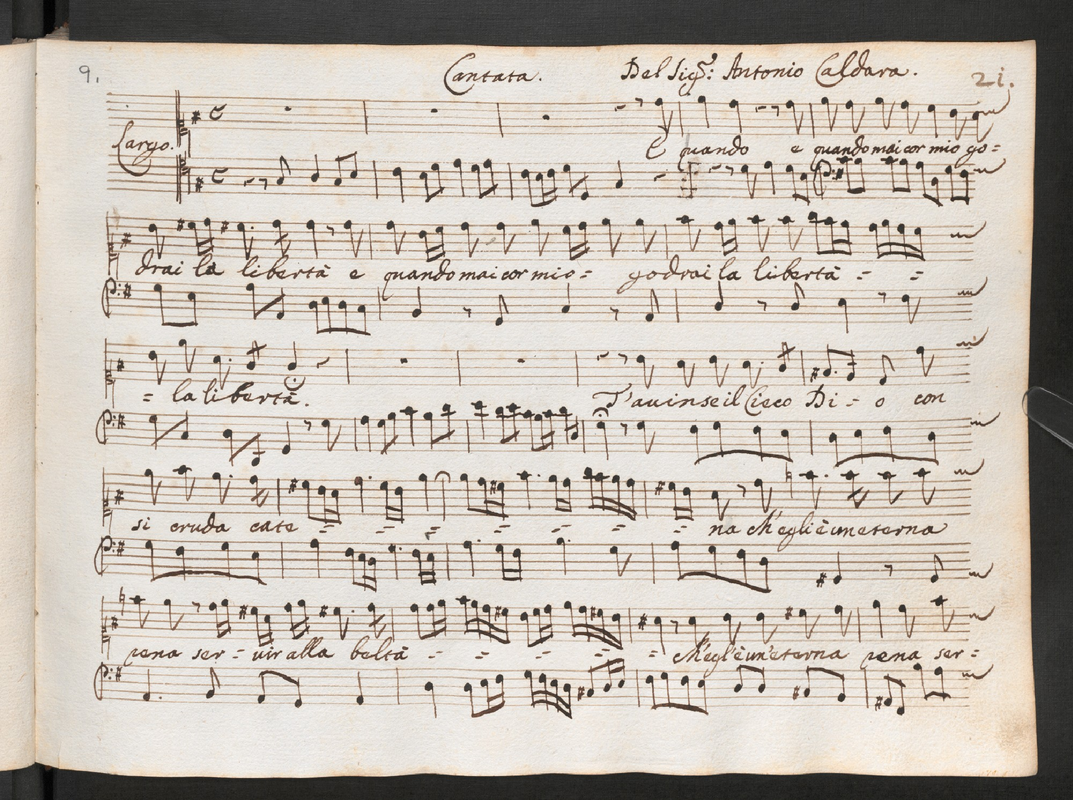 9. Cantata. Del Sig.r: Antonio Caldara. 21.
Largo.
E quando e quando mai cor mio go=
drai la libertà e quando mai cor mio= godrai la libertà = =
= la libertà. T'avinse il Cieco Di - o con
si cruda cate - - - - - na Ch'egli è un eterna
pena ser= vir alla beltà - - - - - Ch'egl'è un'eterna pena ser=